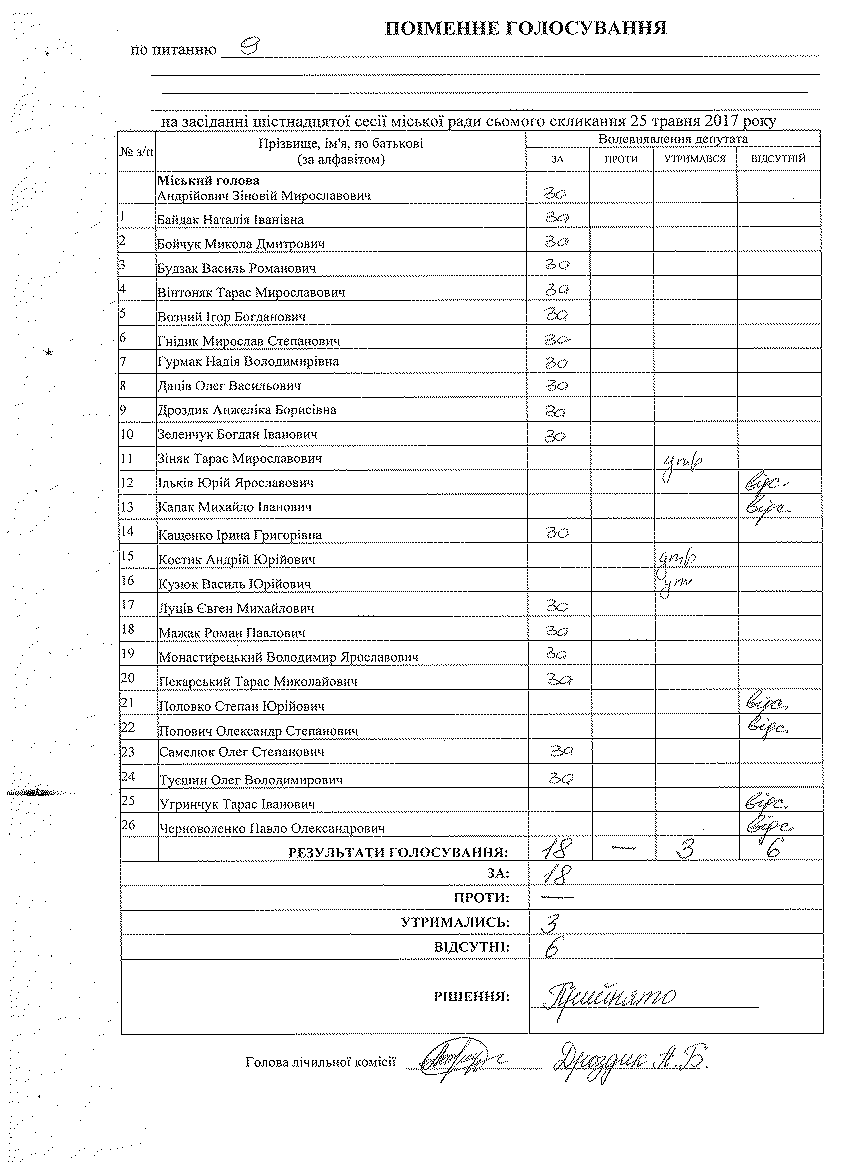 ПОІМЕННЕ ГОЛОСУВАННЯ
по питанню 9
на засіданні шістнадцятої сесії міської ради сьомого скликання 25 травня 2017 року
№ з/п Прізвище, ім'я, по батькові (за алфавітом) Волевиявлення депутата
ЗА ПРОТИ УТРИМАВСЯ ВІДСУТНІЙ
Міський голова
Андрійович Зіновій Мирославович за
1 Байдак Наталія Іванівна за
2 Бойчук Микола Дмитрович за
3 Будзак Василь Романович за
4 Вінтоняк Тарас Мирославович за
5 Возний Ігор Богданович за
6 Гнідик Мирослав Степанович за
7 Гурмак Надія Володимирівна за
8 Даців Олег Васильович за
9 Дроздик Анжеліка Борисівна за
10 Зеленчук Богдан Іванович за
11 Зіняк Тарас Мирославович утр
12 Ільків Юрій Ярославович відс.
13 Капак Михайло Іванович відс.
14 Кащенко Ірина Григорівна за
15 Костик Андрій Юрійович утр
16 Кузюк Василь Юрійович ут
17 Луців Євген Михайлович за
18 Мажак Роман Павлович за
19 Монастирецький Володимир Ярославович за
20 Пекарський Тарас Миколайович за
21 Половко Степан Юрійович відс.
22 Попович Олександр Степанович відс.
23 Самелюк Олег Степанович за
24 Туєшин Олег Володимирович за
25 Угринчук Тарас Іванович відс.
26 Черноволенко Павло Олександрович відс.
РЕЗУЛЬТАТИ ГОЛОСУВАННЯ: 18 — 3 6
ЗА: 18
ПРОТИ: —
УТРИМАЛИСЬ: 3
ВІДСУТНІ: 6
РІШЕННЯ: Прийнято
Голова лічильної комісії Дроздик А.Б.